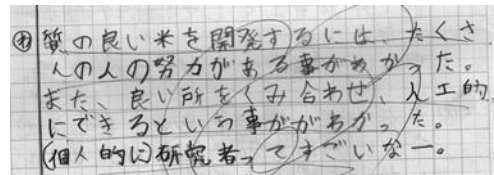 ㋔ 質の良い米を開発するには、たくさ
んの人の努力がある事がわかった。
また、良い所をくみ合わせ、人工的
にできるという事ががわかった。
(個人的に)研究者ってすごいなー。